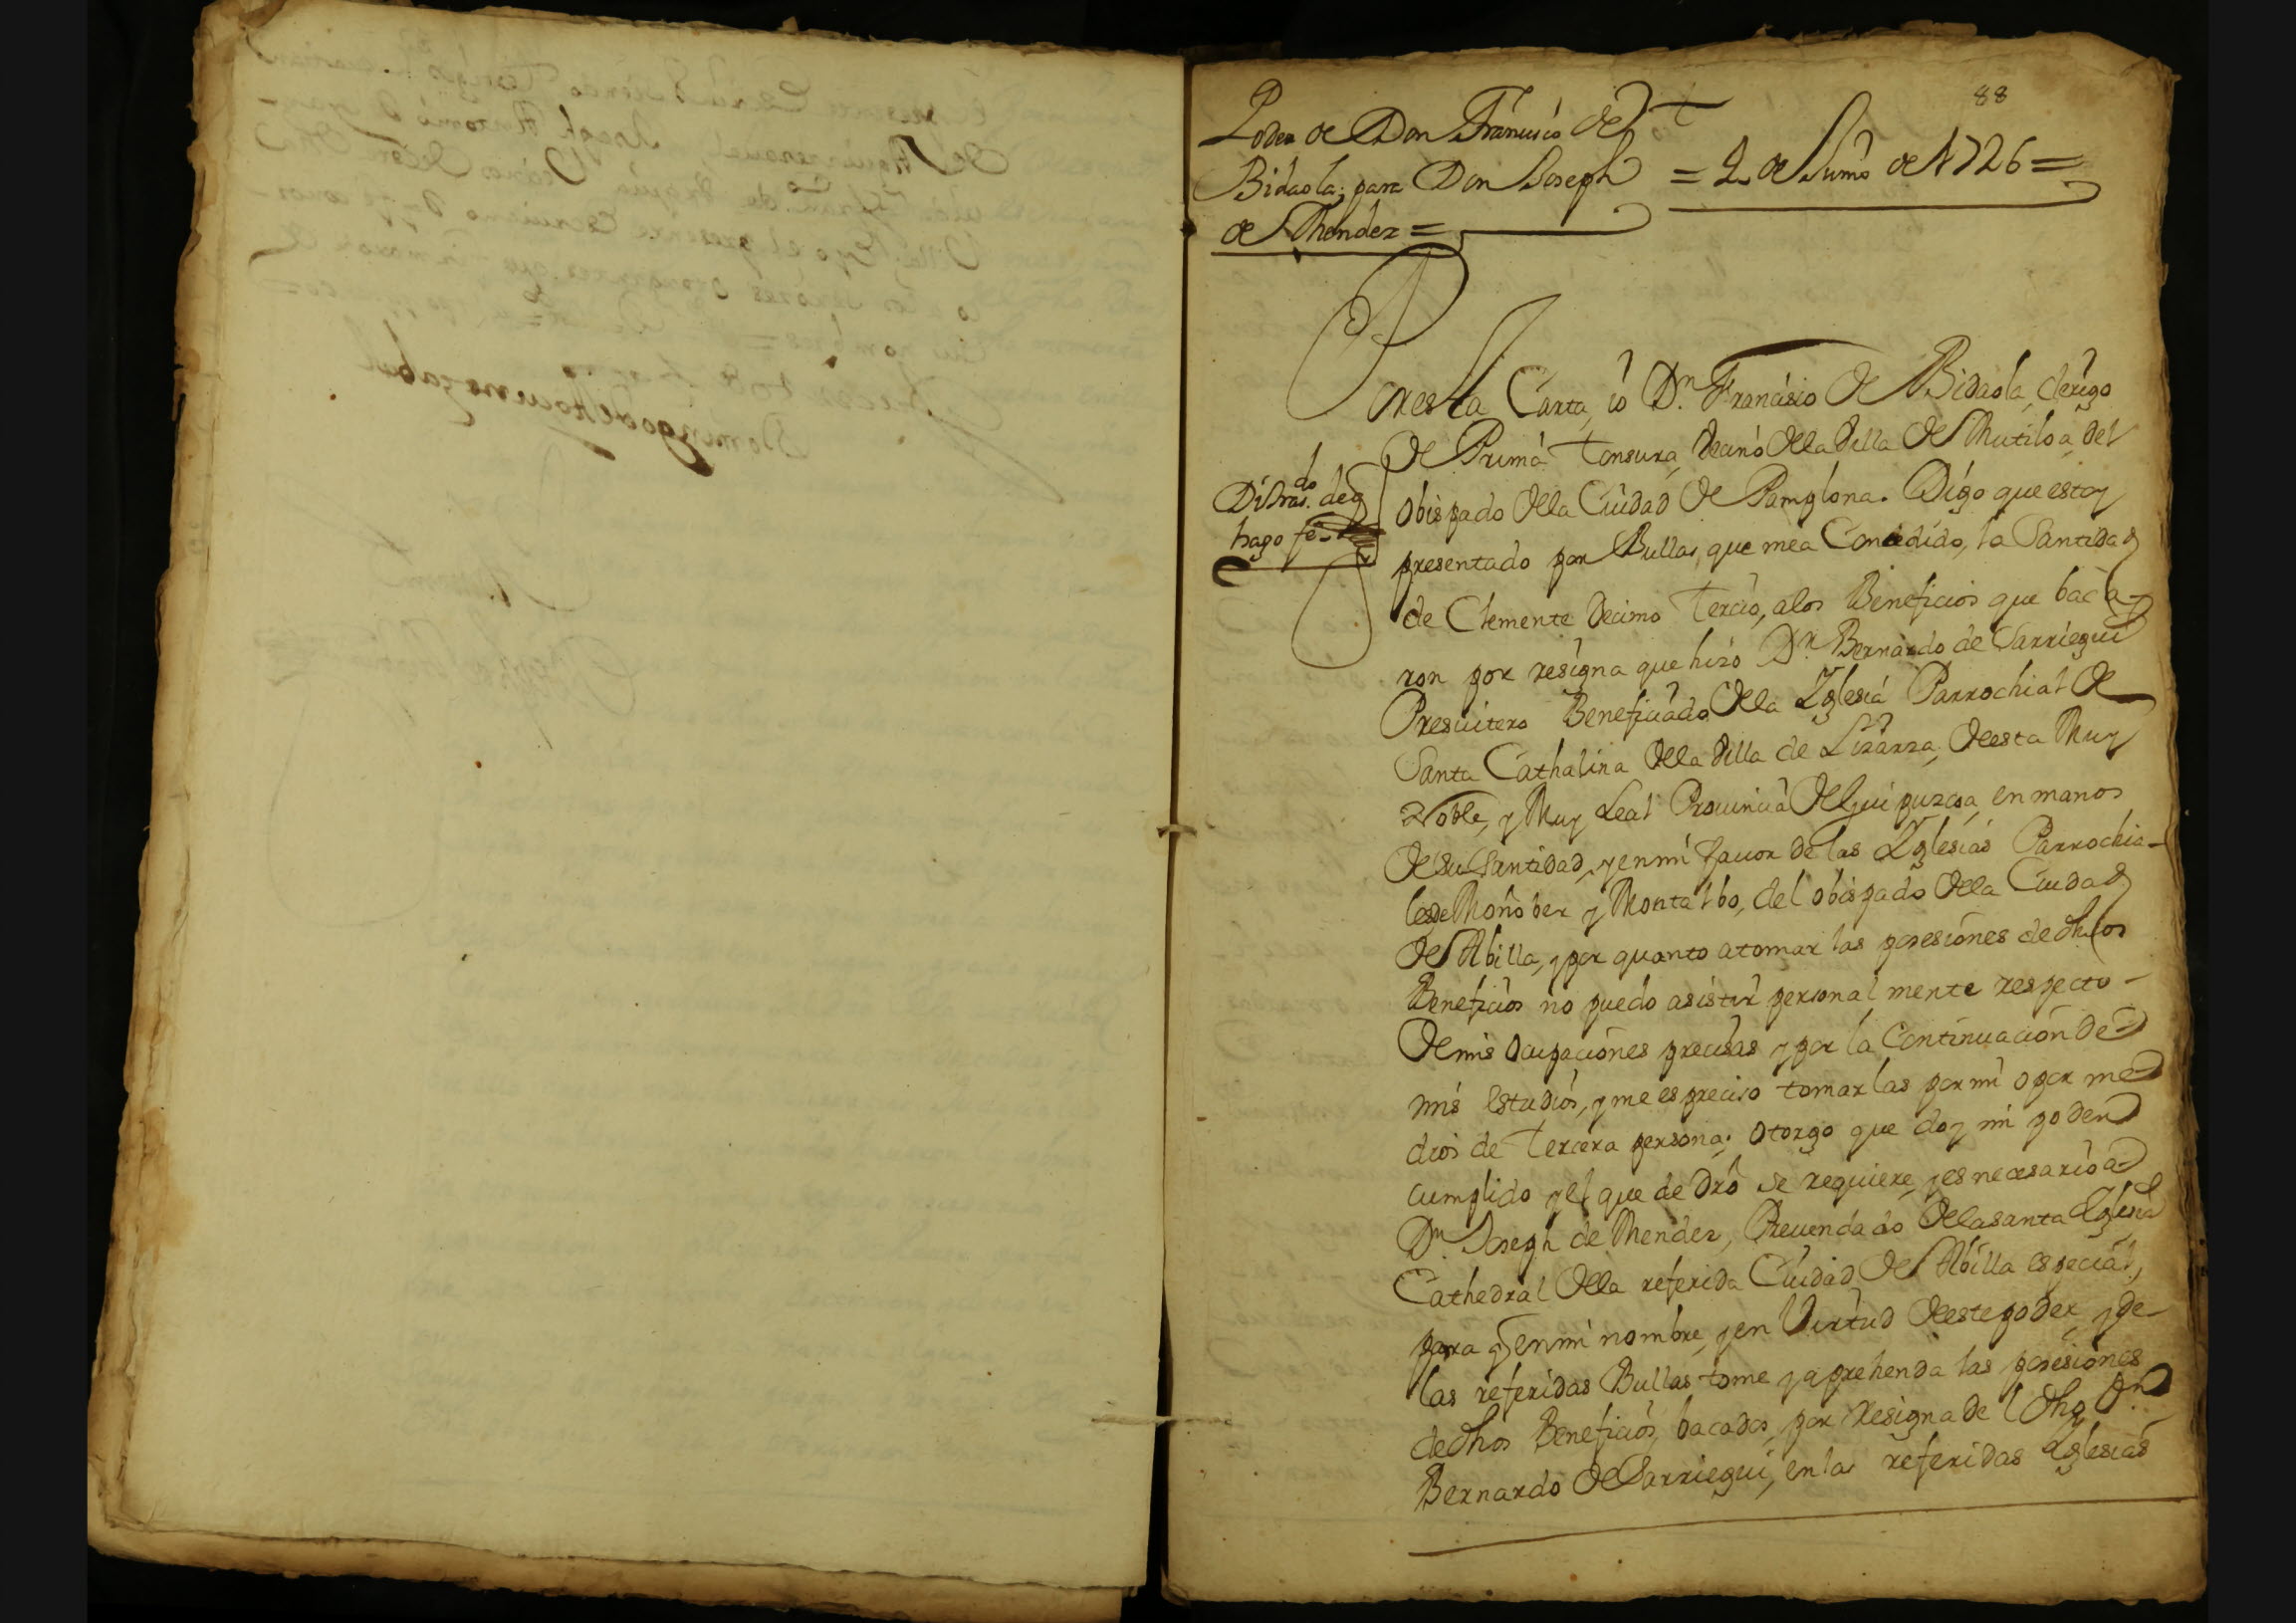 88
Poder de Don Francisco de
Bidaola, para Don Joseph = 2 de Junio de 1726 =
de Mendez =
Por esta Carta, io Dn. Francisco de Bidaola, clerigo
de Prima Tonsura, Vecino de la Villa de Mutiloa, del
obispado de la Ciudad de Pamplona. Digo que estoy
presentado por Bullas, que mea Concedido, la Santidad
de Clemente Decimo Tercio, alos Beneficios que baca-
ron por resigna que hizo Dn. Bernardo de Sarriegui
Presuitero Beneficiado de la Yglesia Parrochial de
Santa Cathalina de la Villa de Lizarza, de esta Muy
Noble, y Muy Leal Prouincia de Guipuzcoa, en manos
de su Santidad, y en mi fauor de las Yglesias Parrochia-
les de Moñober y Montalbo, del obispado de la Ciudad
de Abilla, y por quanto atomar las posesiones de dhos
Beneficios no puedo asistir personalmente respecto-
de mis ocupaciones precisas y por la Continuacion de
mis estudios, y me es preciso tomarlas por mi o por me
dios de Tercera persona. otorgo que doy mi poder
cumplido y el que de dro se requiere, y es necesario a
Dn. Joseph de Mendez, Preuendado de la santa Yglesia
Cathedral de la referida Ciudad de Abilla especial,
para q en mi nombre, y en Virtud de este poder, y de-
las referidas Bullas tome y aprehenda las posesiones
de dhos Beneficios, bacados, por resigna del dho Dn.
Bernardo de Sarriegui, en las referidas Yglesias
hago fe